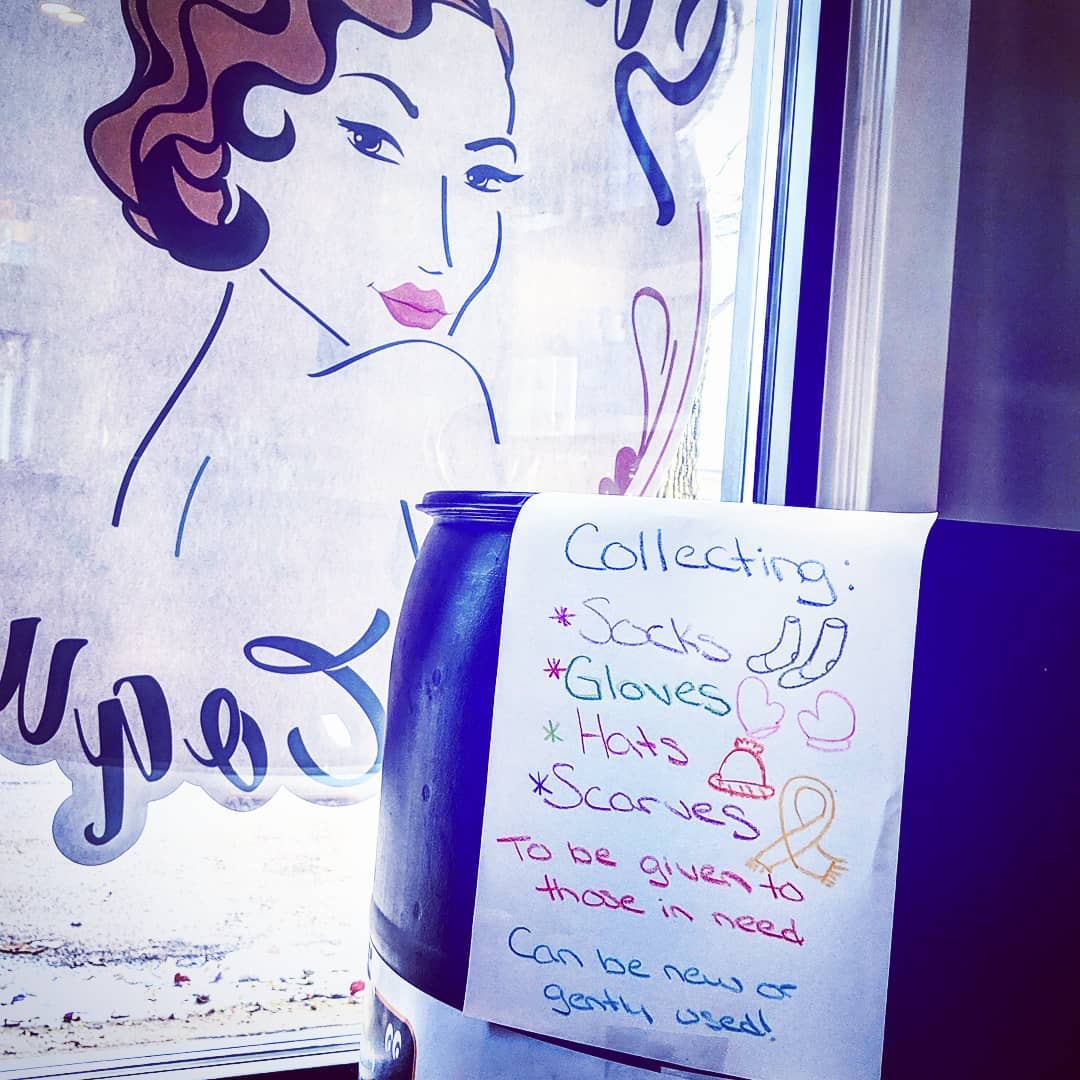 Collecting:
* Socks
* Gloves
* Hats
* Scarves
To be given to
those in need
Can be new or
gently used!